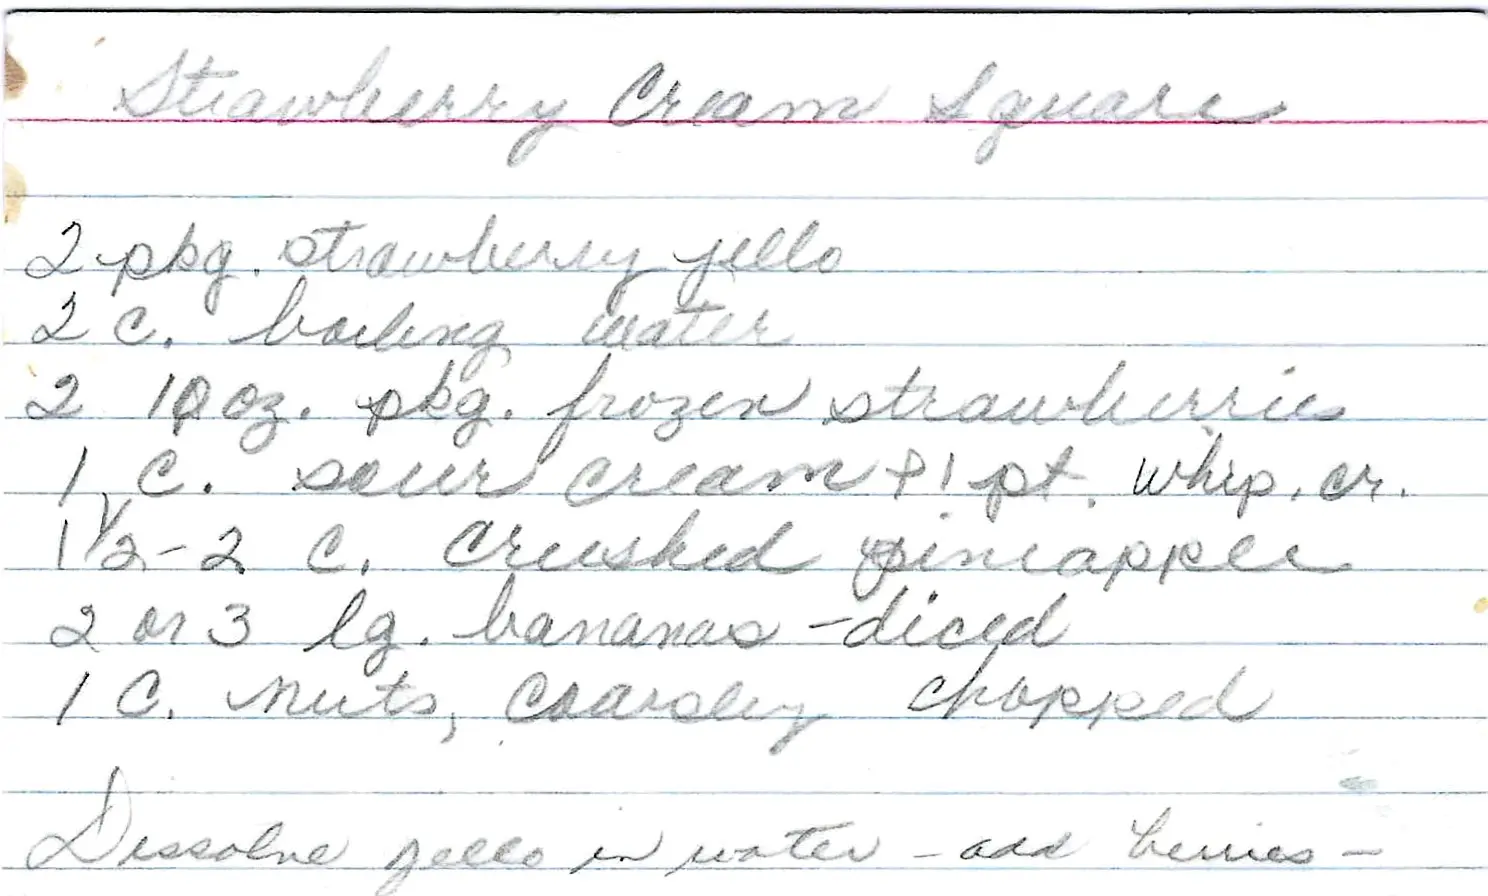 Strawberry Cream Square
2 pkg. strawberry jello
2 c. boiling water
2 10 oz. pkg. frozen strawberries
1 c. sour cream + 1 pt. whip. cr.
1 1/2 - 2 c. crushed pineapple
2 or 3 lg. bananas - diced
1 c. nuts, coarsley chopped
Dissolve jello in water - add berries -